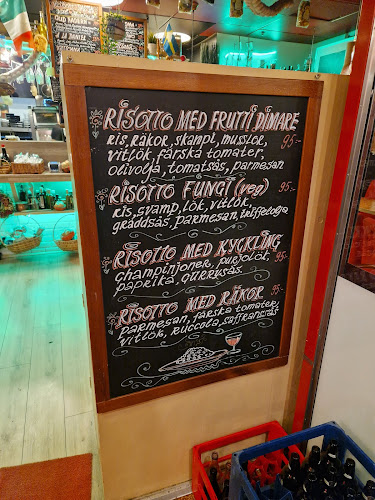 RISOTTO MED FRUTTI DIMARE
RIS, RÄKOR, SKAMPI, MUSSLOR, 95:-
VITLÖK, FÄRSKA TOMATER,
OLIVOLJA, TOMATSÅS, PARMESAN
RISOTTO FUNGI (VEG) 95:-
RIS, SVAMP, LÖK, VITLÖK,
GRÄDDSÅS, PARMESAN, TRYFFELOLJA
RISOTTO MED KYCKLING
CHAMPINJONER, PURJOLÖK, 95:-
PAPRIKA, CURRYSÅS
RISOTTO MED RÄKOR 95:-
PARMESAN, FÄRSKA TOMATER,
VITLÖK, RUCCOLA, SAFFRANSÅS